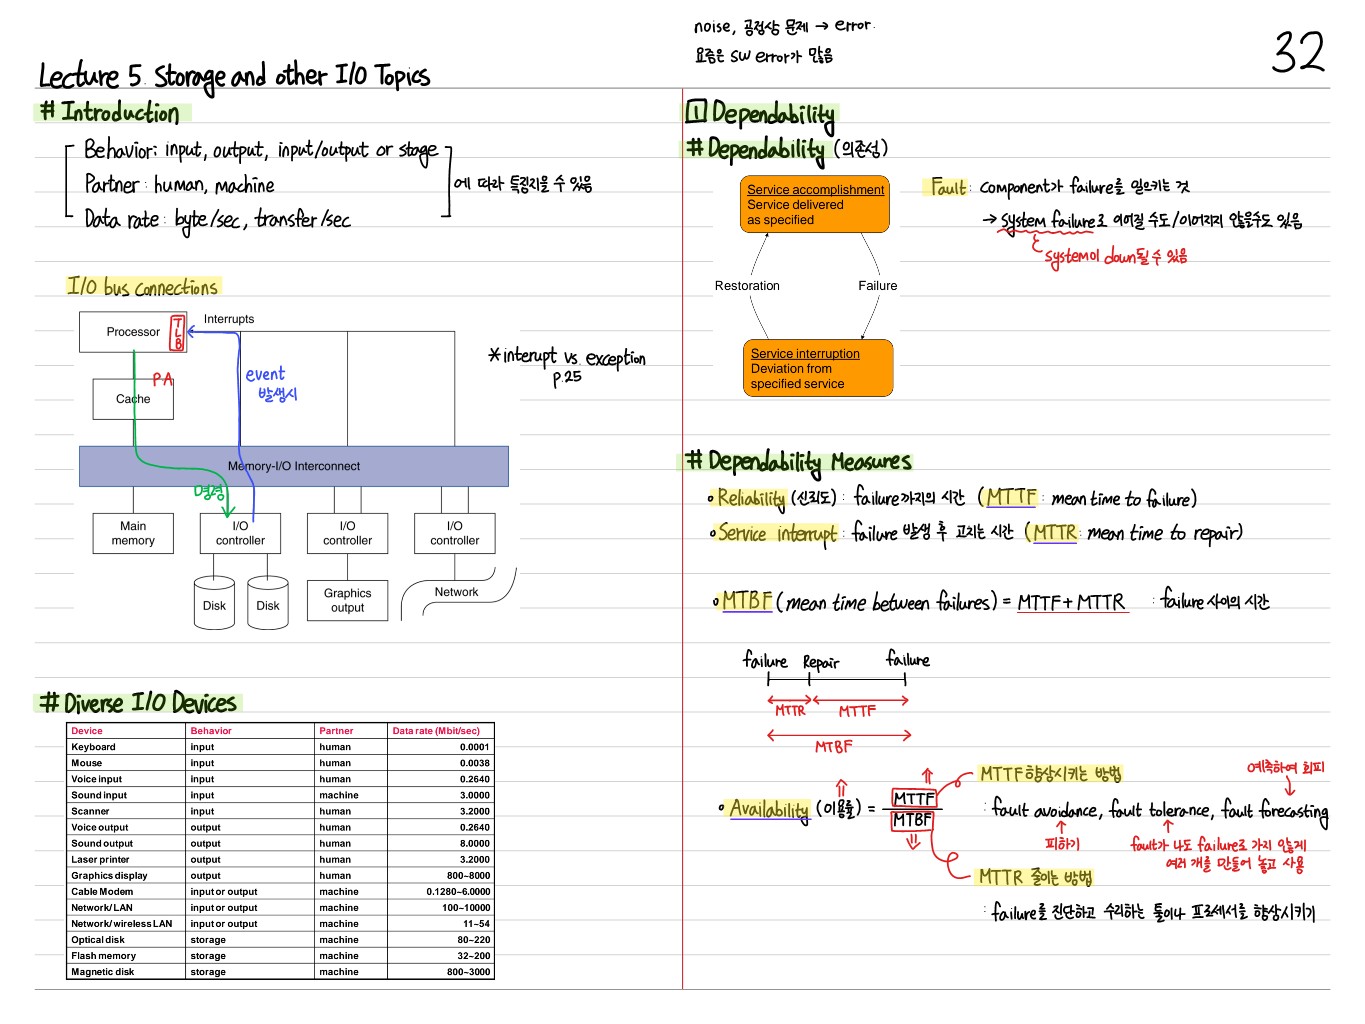 noise, 공정상 문제 → error.
요즘은 SW error가 많음
32
Lecture 5. Storage and other I/O Topics
# Introduction
Behavior: input, output, input/output or stage
Partner: human, machine
Data rate: byte/sec, transfer/sec
에 따라 특징지을 수 있음
I/O bus connections
Processor
TLB
Interrupts
PA
Cache
event
발생시
*interupt vs. exception
p.25
Memory-I/O Interconnect
명령
Main
memory
I/O
controller
I/O
controller
I/O
controller
Disk
Disk
Graphics
output
Network
# Diverse I/O Devices
Device Behavior Partner Data rate (Mbit/sec)
Keyboard input human 0.0001
Mouse input human 0.0038
Voice input input human 0.2640
Sound input input machine 3.0000
Scanner input human 3.2000
Voice output output human 0.2640
Sound output output human 8.0000
Laser printer output human 3.2000
Graphics display output human 800~8000
Cable Modem input or output machine 0.1280~6.0000
Network/LAN input or output machine 100~10000
Network/wireless LAN input or output machine 11~54
Optical disk storage machine 80~220
Flash memory storage machine 32~200
Magnetic disk storage machine 800~3000
1 Dependability
# Dependability (의존성)
Service accomplishment
Service delivered
as specified
Restoration
Failure
Service interruption
Deviation from
specified service
Fault: Component가 failure를 일으키는 것
→ system failure로 이어질 수도/이어지지 않을수도 있음
system이 down될 수 있음
# Dependability Measures
• Reliability (신뢰도) : failure까지의 시간 (MTTF : mean time to failure)
• Service interrupt : failure 발생 후 고치는 시간 (MTTR : mean time to repair)
• MTBF (mean time between failures) = MTTF + MTTR : failure 사이의 시간
failure Repair failure
MTTR MTTF
MTBF
• Availability (이용률) = MTTF
MTBF
MTTF 향상시키는 방법
예측하여 회피
: fault avoidance, fault tolerance, fault forecasting
피하기
fault가 나도 failure로 가지 않게
여러 개를 만들어 놓고 사용
MTTR 줄이는 방법
: failure를 진단하고 수리하는 툴이나 프로세서를 향상시키기